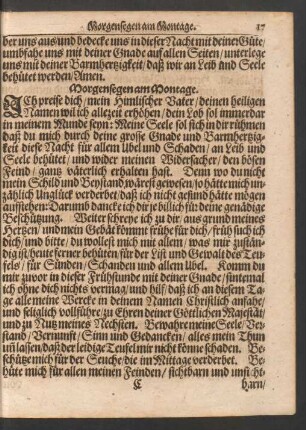 Morgensegen am Montage. 17
ber uns aus/ und bedecke uns in dieser Nacht mit deiner Güte/
umbfahe uns mit deiner Gnade auf allen Seiten/ unterlege
uns mit deiner Barmhertzigkeit/ daß wir an Leib und Seele
behütet werden/ Amen.
Morgensegen am Montage.
ICh preise dich/ mein Himlischer Vater/ deinen heiligen
Namen wil ich allezeit erhöhen/ dein Lob sol immerdar
in meinem Munde seyn: Meine Seele sol sich in dir rühmen
daß du mich durch deine grosse Gnade und Barmhertzig-
keit diese Nacht für allem Ubel und Schaden/ an Leib und
Seele behütet/ und wider meinen Widersacher/ den bösen
Feind/ gantz väterlich erhalten hast. Denn wo du nicht
mein Schild und Beystand wärest gewesen/ so hätte mich un-
zählich Unglück verderbet/ daß ich nicht gesund hätte mögen
aufstehen: Darumb dancke ich dir je billich für deine genädige
Beschützung. Weiter schreye ich zu dir aus grund meines
Hertzen/ und mein Gebät kömmt frühe für dich/ früh such ich
dich/ und bitte/ du wollest mich mit allem/ was mir zustän-
dig ist/ heute ferner behüten für der List und Gewalt des Teu-
fels/ für Sünden/ Schanden und allem Ubel. Komm du
mir zuvor in dieser Frühstunde mit deiner Gnade/ sintemal
ich ohne dich nichts vermag/ und hilf/ daß ich an diesem Ta-
ge alle meine Wercke in deinem Namen Christlich anfahe/
und seliglich vollführe/ zu Ehren deiner Göttlichen Majestät/
und zu Nutz meines Nechsten. Bewahre meine Seele/ Ver-
stand/ Vernunft/ Sinn und Gedancken/ alles mein Thun
uñ lassen/ daß der leidige Teufel mir nicht könne schaden. Be-
schütze mich für der Seuche/ die im Mittage verderbet. Be-
hüte mich für allen meinen Feinden/ sichtbarn und unsicht-
C barn/